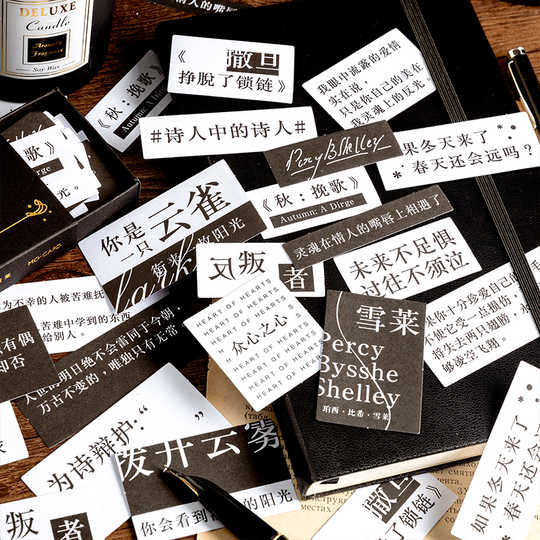 DELUXE
Candle
Soy Wax
情人的嘴唇
《
撒旦
挣脱了锁链》
《秋：挽歌》
Autumn: A Dirge
#诗人中的诗人#
我眼中流露的爱情
实在说，
只是你自己的美在
我灵魂上的反光。
Percy B Shelley
果冬天来了
春天还会远吗？
《秋：挽歌》
Autumn: A Dirge
灵魂在情人的嘴唇上相遇了
歌》
Dirge
光。
MO·CARD
你是
一只
云雀
衔来
放阳光
Lark
反叛
者
未来不足惧
过往不须泣
为不幸的人被苦难抚
苦难中学到的东西
给别人。
HEART OF HEARTS
HEART OF HEARTS
HEART OF HEARTS
众心之心
HEART OF HEARTS
HEART OF HEARTS
HEART OF HEARTS
HEART OF HEARTS
雪莱
Percy
Bysshe
Shelley
珀西·比希·雪莱
你十分珍爱自己的
不使它受一点损伤，
将失去两只翅膀，永
够凌空飞翔。
有偶
却否
人世的明日绝不会雷同于今朝，
万古不变的，唯独只有无常
为诗辩护：“
”
拨开云雾
你会看到
的阳光
叛
者
撒旦
了锁链》
如果冬天来了
春天还会远